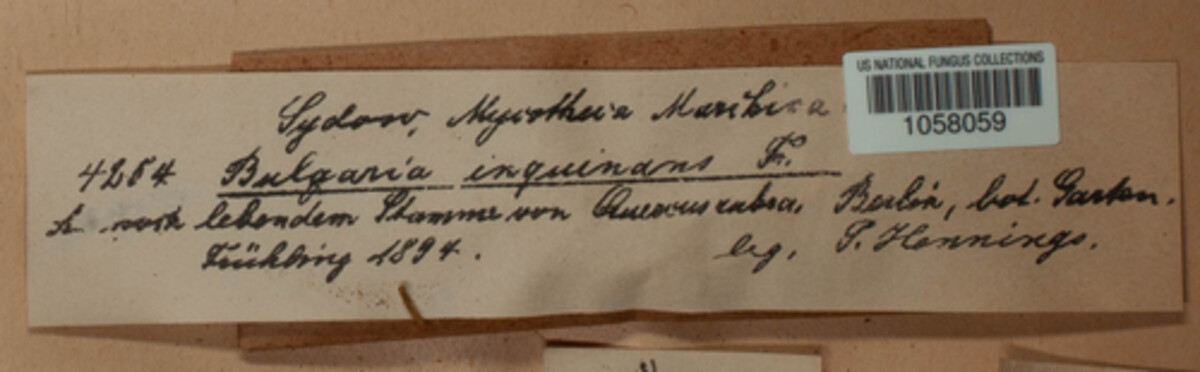 US NATIONAL FUNGUS COLLECTIONS
1058059
Sydow, Mycotheca Marchica
4284 Bulgaria inquinans Fr.
noch lebendem Stamme von Quercus rubra, Berlin, bot. Garten.
Frühling 1894.
leg. P. Hennings.